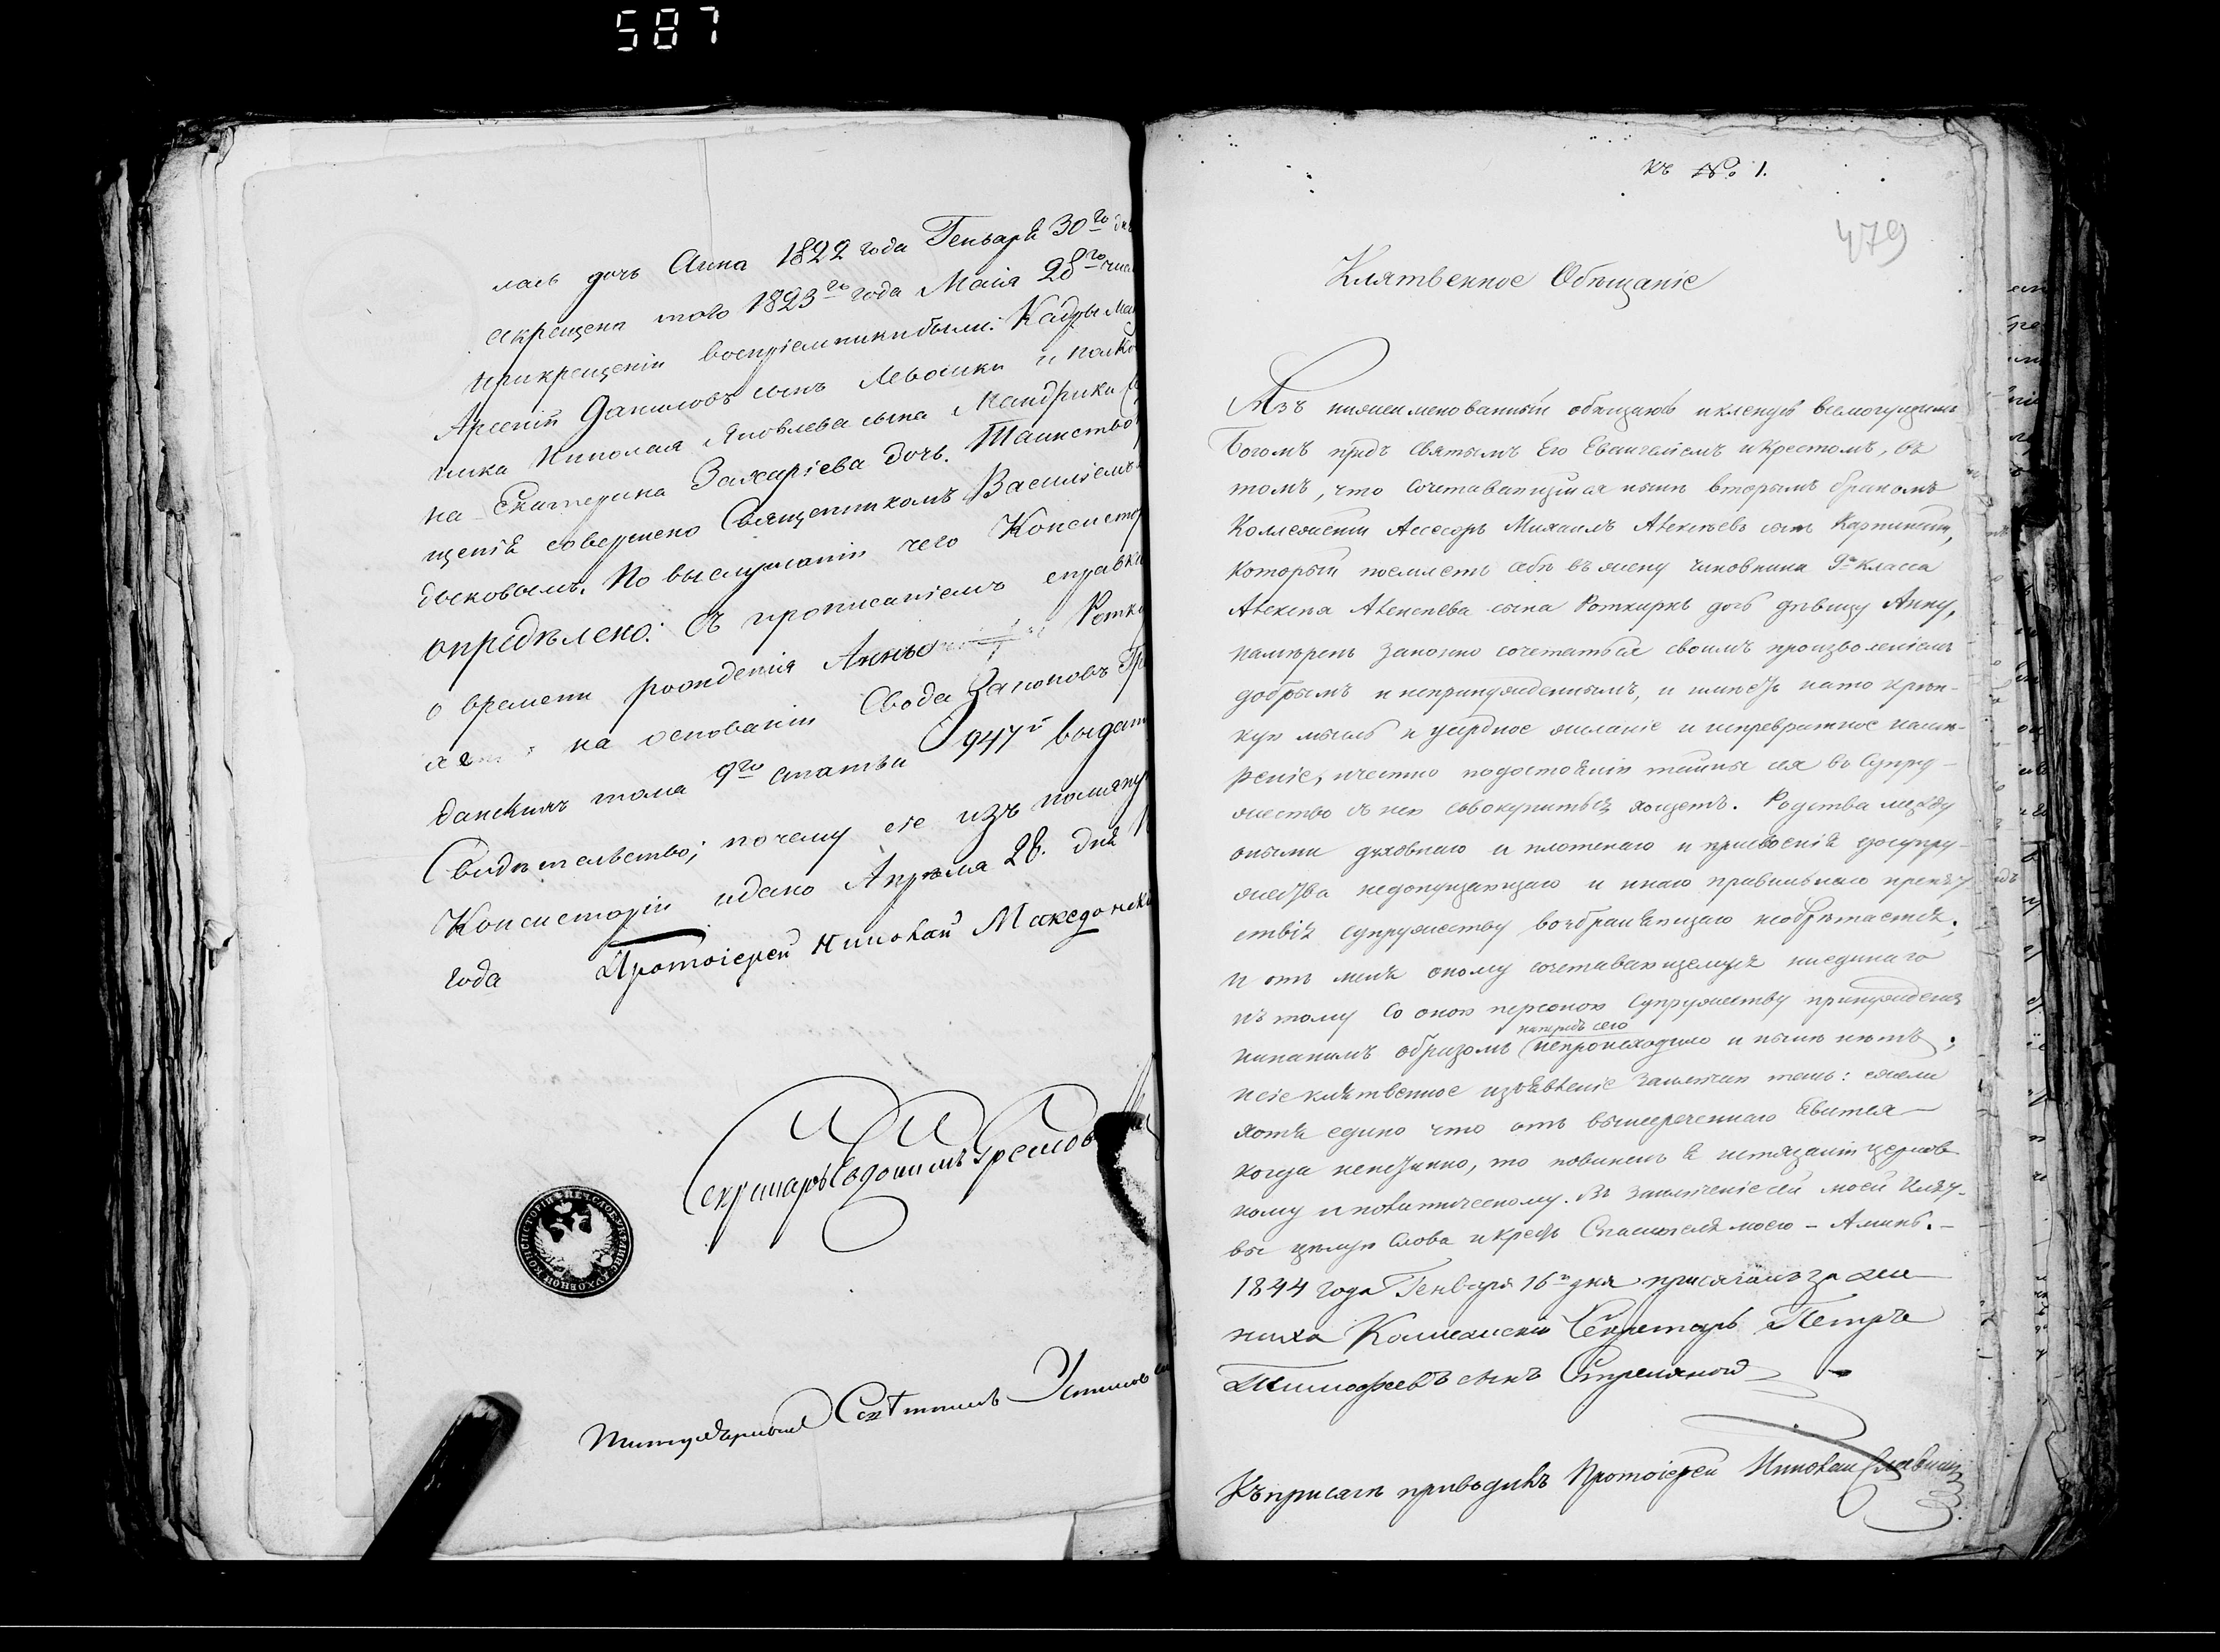 587
лась дочь Анна 1822 года Генваря 30го дня
акрещена того 1823го года Маія 28го числ
прикрещеніи воспріемниками были: Кадры Ма
Арсеній Даниловъ сынъ Левошки и полко
ника Николая Яковлева сына Мандрики
на Екатерина Захаріева дочь. Таинство
щенія совершено Священникомъ Василіемъ
дысковымъ. По выслушаніи чего Консисто
опредѣлено: Съ прописаніемъ справки
о времени рожденія Анны Ротки
на основаніи Свода Законовъ Гр
данскихъ тома 9го статьи 947й выдат
Свидѣтельство; почему сіе изъ помяну
Консисторіи идано Апрѣля 28. дня
года Протоіерей Николай Македонскі
Секретарь Евдокимъ
Титулярный Совѣтникъ Устимов
къ № 1.
479
Клятвенное Обѣщаніе
Азъ нижеименованный обѣщаюсь и кленусь всемогущимъ
Богомъ предъ Святымъ Его Евангеліемъ и Крестомъ, въ
томъ, что сочетавающійся нынѣ вторымъ бракомъ
Коллежскій Ассесоръ Михаилъ Алексѣевъ сынъ Карпинскій,
который поемлетъ себѣ въ жену чиновника 9го класса
Алексѣя Алексѣева сына Роткирхъ дочь дѣвицу Анну,
намѣренъ законно сочетаться своимъ произволеніемъ
добрымъ и непринужденнымъ, и имѣетъ на то крѣп-
кую мысль и усердное желаніе и непревратное намѣ-
реніе, и честно по достоянію тайны сея въ Супру-
жество съ нею совокупиться хощетъ. Родства между
оными духовнаго и плотскаго и присвоенія досупру-
жества недопущающаго и инаго правильнаго препят
ствія супружеству возбраняющаго необрѣтается;
и отъ меня оному сочетавающемуся ниединаго
къ тому со оною персоною супружеству принужденія
напредь сего
никакимъ образомъ непроисходило и нынѣ нѣтъ;
и сіе клятвенное изъявленіе заключаю тѣмъ: ежели
хотя едино что отъ вышереченнаго явится
когда неистинно, то повиненъ я истязанію церков-
ному и политическому. Въ заключеніе сей моей клят-
вы цѣлую Слова и крестъ Спасителя моего – Аминь. –
1844 года Генваря 16го дня присягалъ за же-
ниха Коллежскій Секретарь Петръ
Тимофеевъ сынъ Стреляной
Къ присягѣ приводилъ Протоіерей Николай